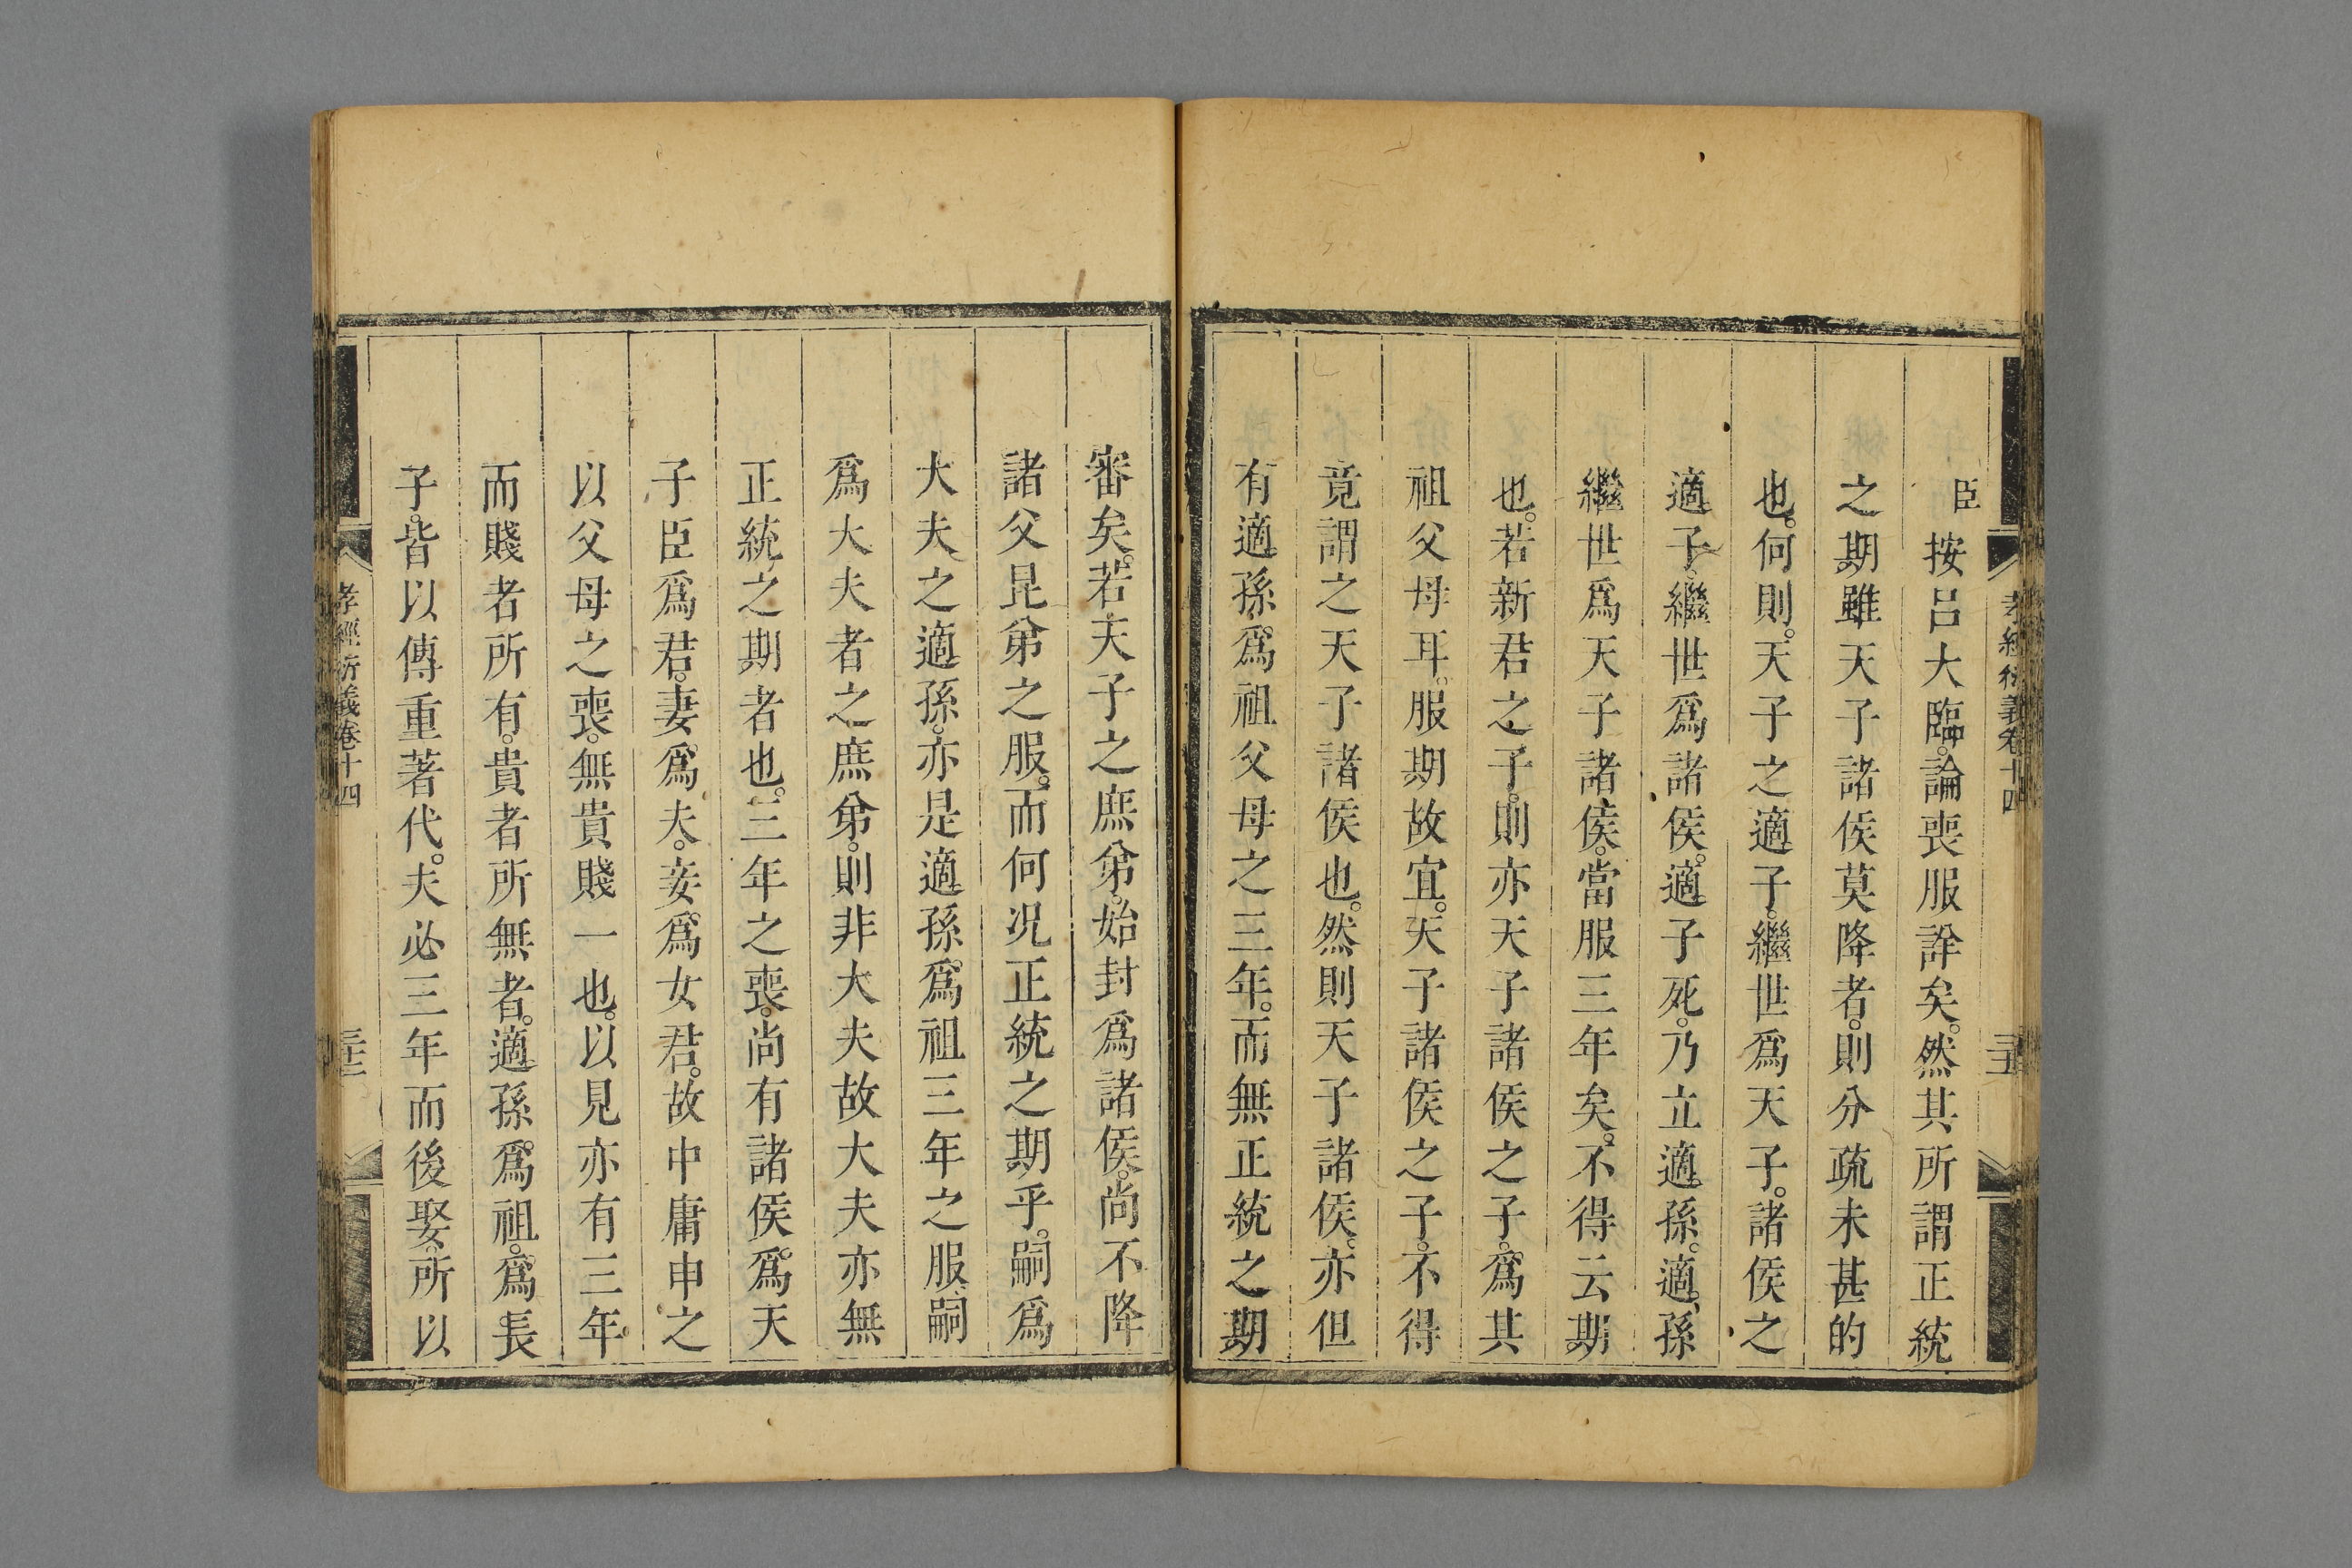 孝經衍義卷十四
臣按呂大臨論喪服詳矣然其所謂正統
之期雖天子諸侯莫降者則分疏未甚的
也何則天子之適子繼世爲天子諸侯之
適子繼世爲諸侯適子死乃立適孫適孫
繼世爲天子諸侯當服三年矣不得云期
也若新君之子則亦天子諸侯之子爲其
祖父母耳服期故宜天子諸侯之子不得
竟謂之天子諸侯也然則天子諸侯亦但
有適孫爲祖父母之三年而無正統之期
審矣若天子之庶弟始封爲諸侯尚不降
諸父昆弟之服而何况正統之期乎嗣爲
大夫之適孫亦是適孫爲祖三年之服嗣
爲大夫者之庶弟則非大夫故大夫亦無
正統之期者也三年之喪尚有諸侯爲天
子臣爲君妻爲夫妾爲女君故中庸申之
以父母之喪無貴賤一也以見亦有三年
而賤者所有貴者所無者適孫爲祖爲長
子皆以傳重著代夫必三年而後娶所以
孝經衍義卷十四